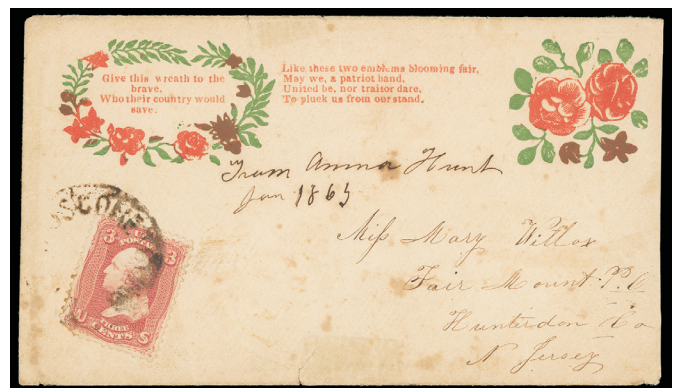 Give this wreath to the
brave,
Who their country would
save.
Like these two emblems blooming fair,
May we, a patriot band,
United be, nor traitor dare,
To pluck us from our stand.
From Anna Hunt
Jan 1863
Miss Mary Willox
Fair Mount P. O
Hunterdon Co
N Jersey
3 U.S. 3
POSTAGE
THREE
U CENTS S